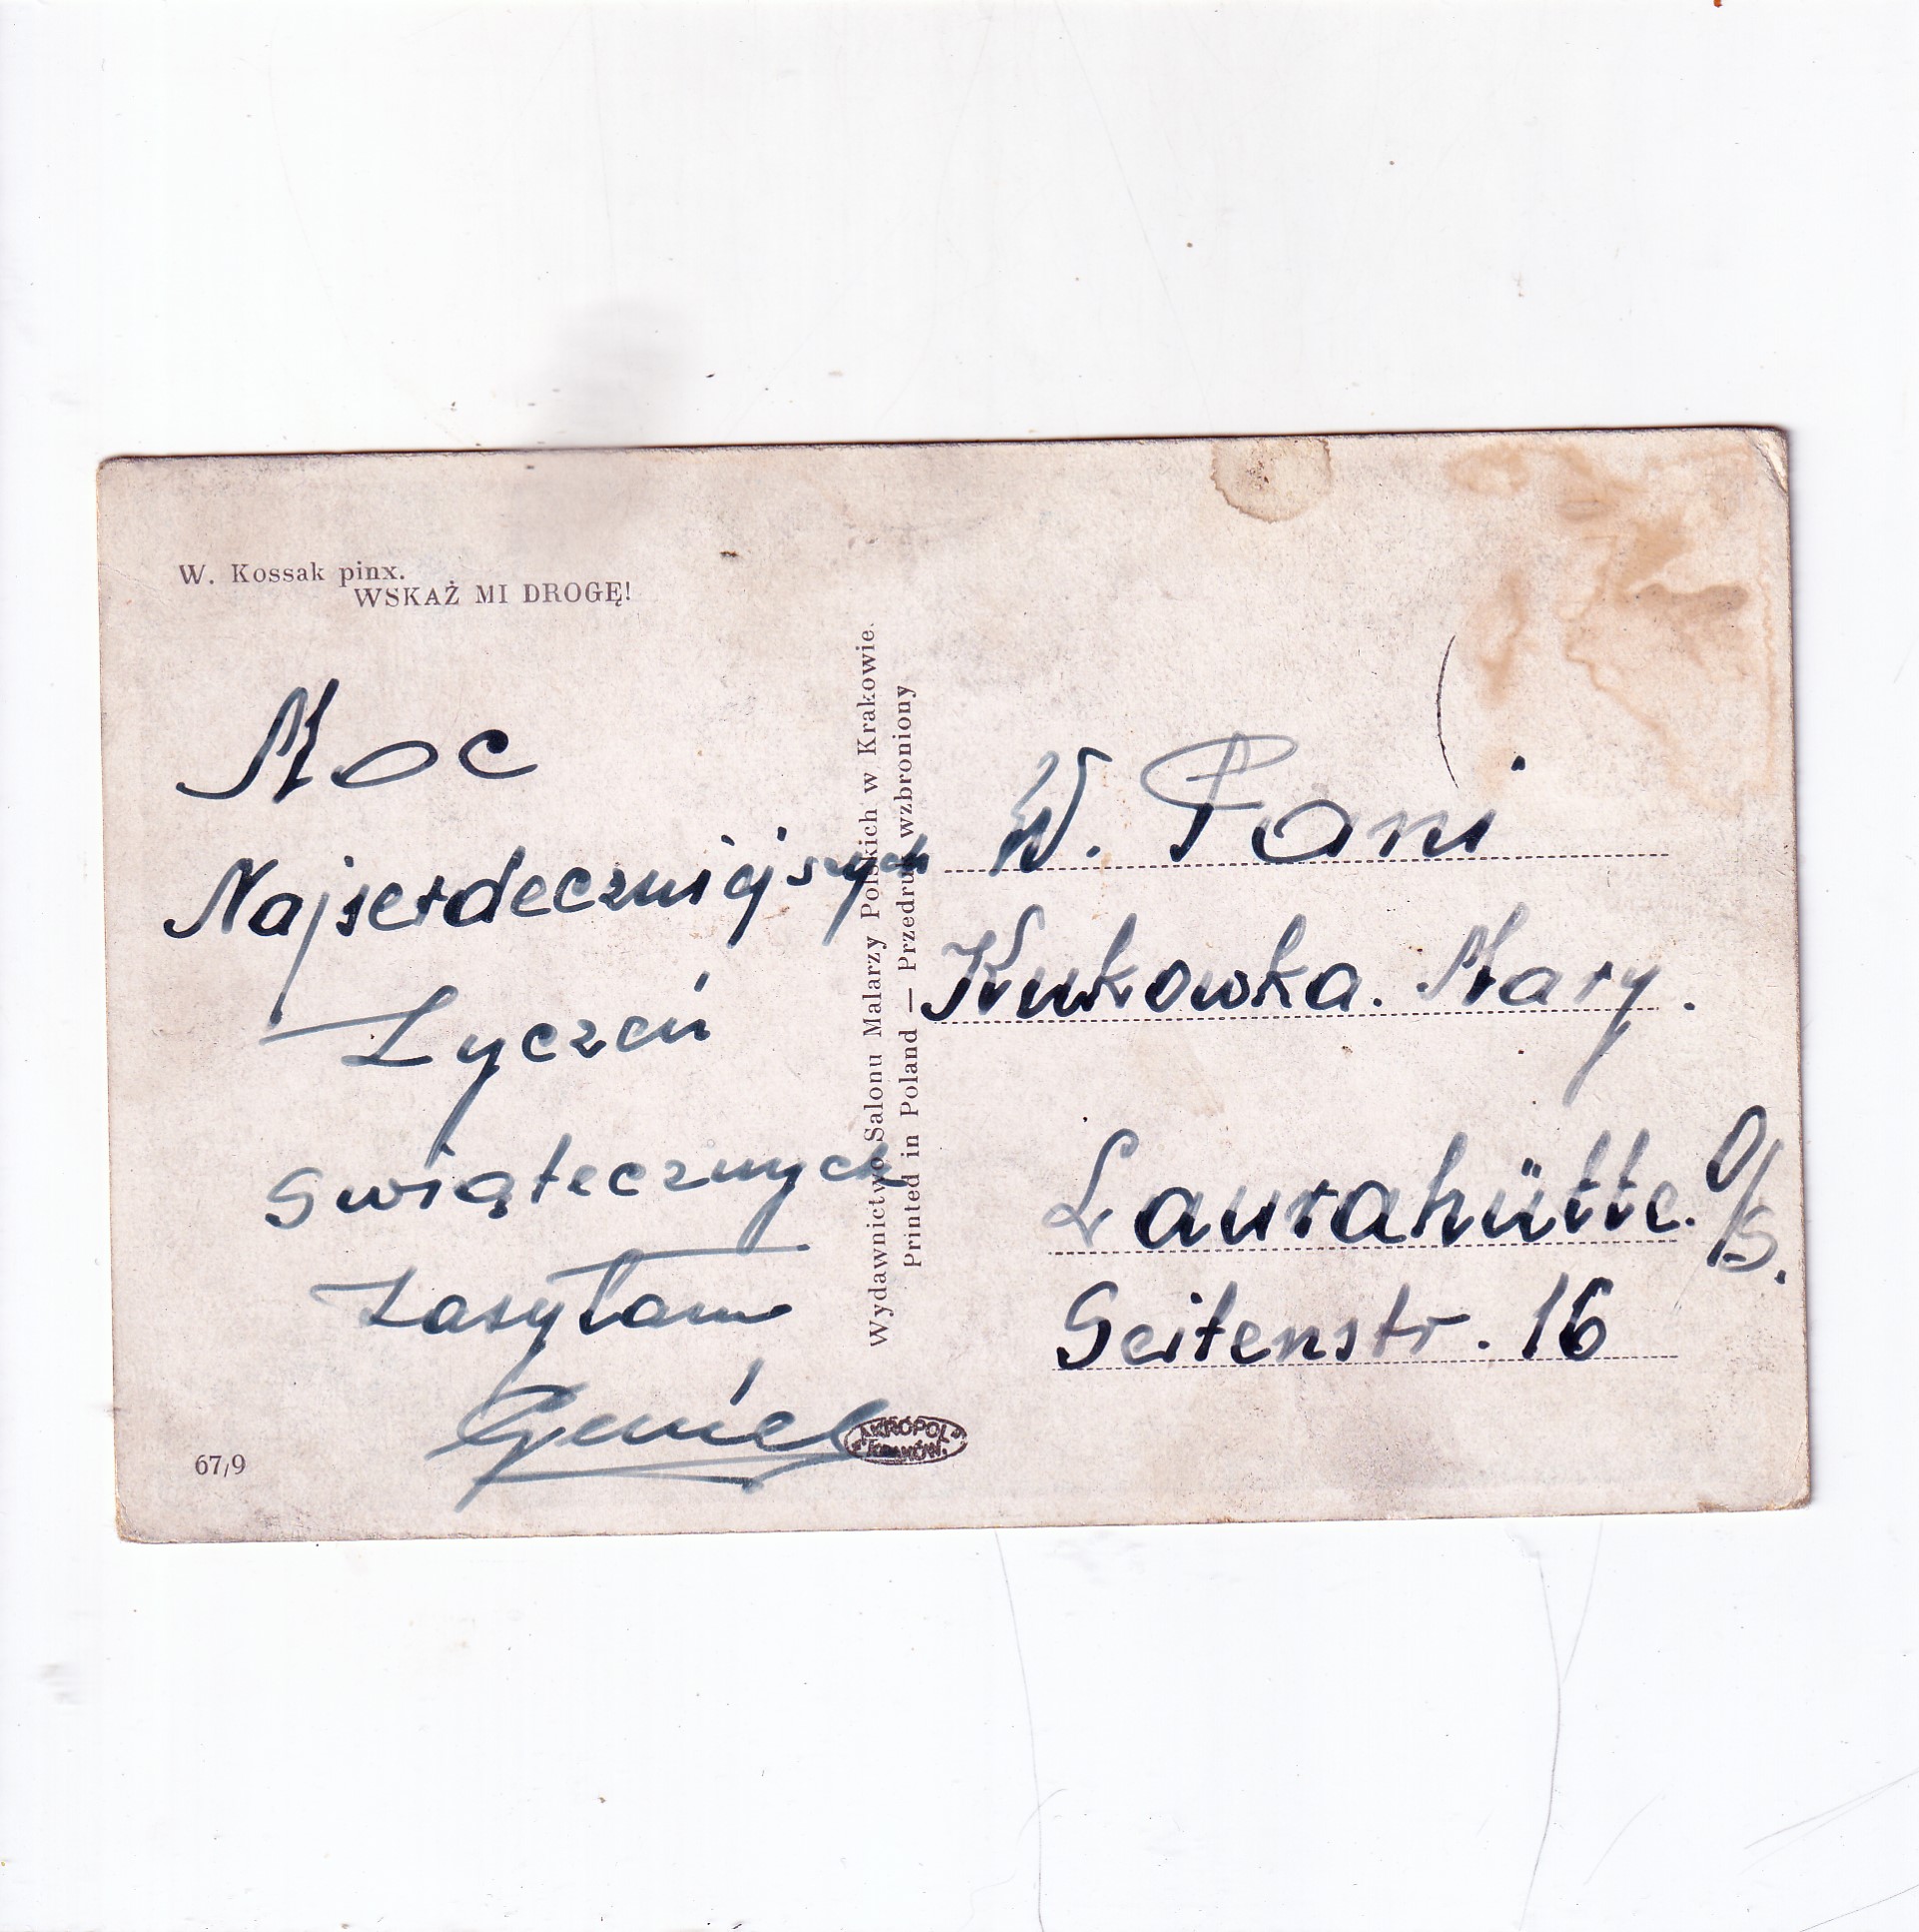 W. Kossak pinx.
WSKAŻ MI DROGĘ!
Moc
Najserdeczniejszych
Zyczeń
swiątecznych
Zasyłam
67/9
Wydawnictwo Salonu Malarzy Polskich w Krakowie.
Printed in Poland — Przedruk wzbroniony
AKROPOL
KRAKÓW.
W. Pani
Kukowka. Mary.
Laurahütte. O/S.
Seitenstr. 16